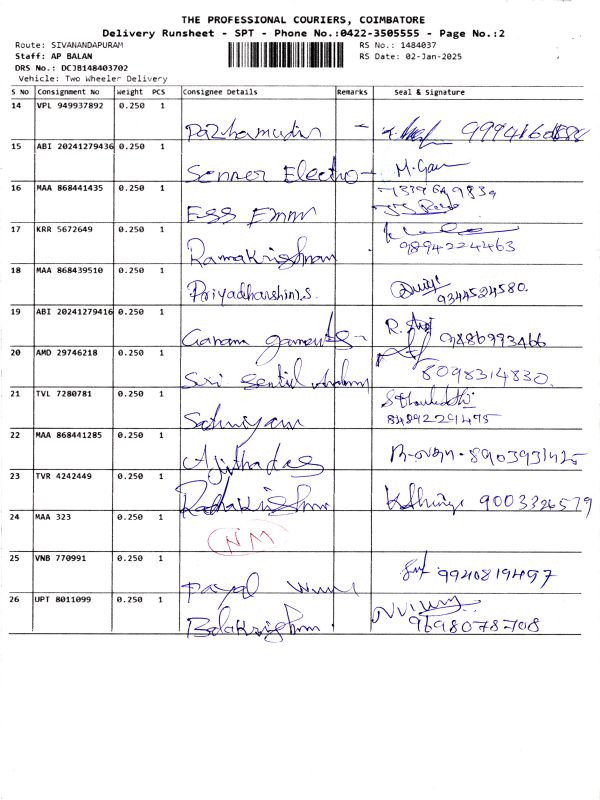 THE PROFESSIONAL COURIERS, COIMBATORE
Delivery Runsheet - SPT - Phone No.:0422-3505555 - Page No.:2
Route: SIVANANDAPURAM
RS No.: 1484037
Staff: AP BALAN
RS Date: 02-Jan-2025
DRS No.: DCJB148403702
Vehicle: Two Wheeler Delivery
S No Consignment No Weight PCS Consignee Details Remarks Seal & Signature
14 VPL 949937892 0.250 1
15 ABI 20241279436 0.250 1 Senner Electro M. Gan
16 MAA 868441435 0.250 1 ESS Emm
17 KRR 5672649 0.250 1 Ramakrishnan 9894224463
18 MAA 868439510 0.250 1 Priyadharshini.S. 9344524580.
19 ABI 20241279416 0.250 1 Ganam garments
20 AMD 29746218 0.250 1 Sri Sentil 8098314830.
21 TVL 7280781 0.250 1 8489229495
22 MAA 868441285 0.250 1 Ajithadas
23 TVR 4242449 0.250 1 Radhakrishnan 9003326579
24 MAA 323 0.250 1 NM
25 VNB 770991 0.250 1 Payal 9940819497
26 UPT 8011099 0.250 1 Balakrishnan 9698078708